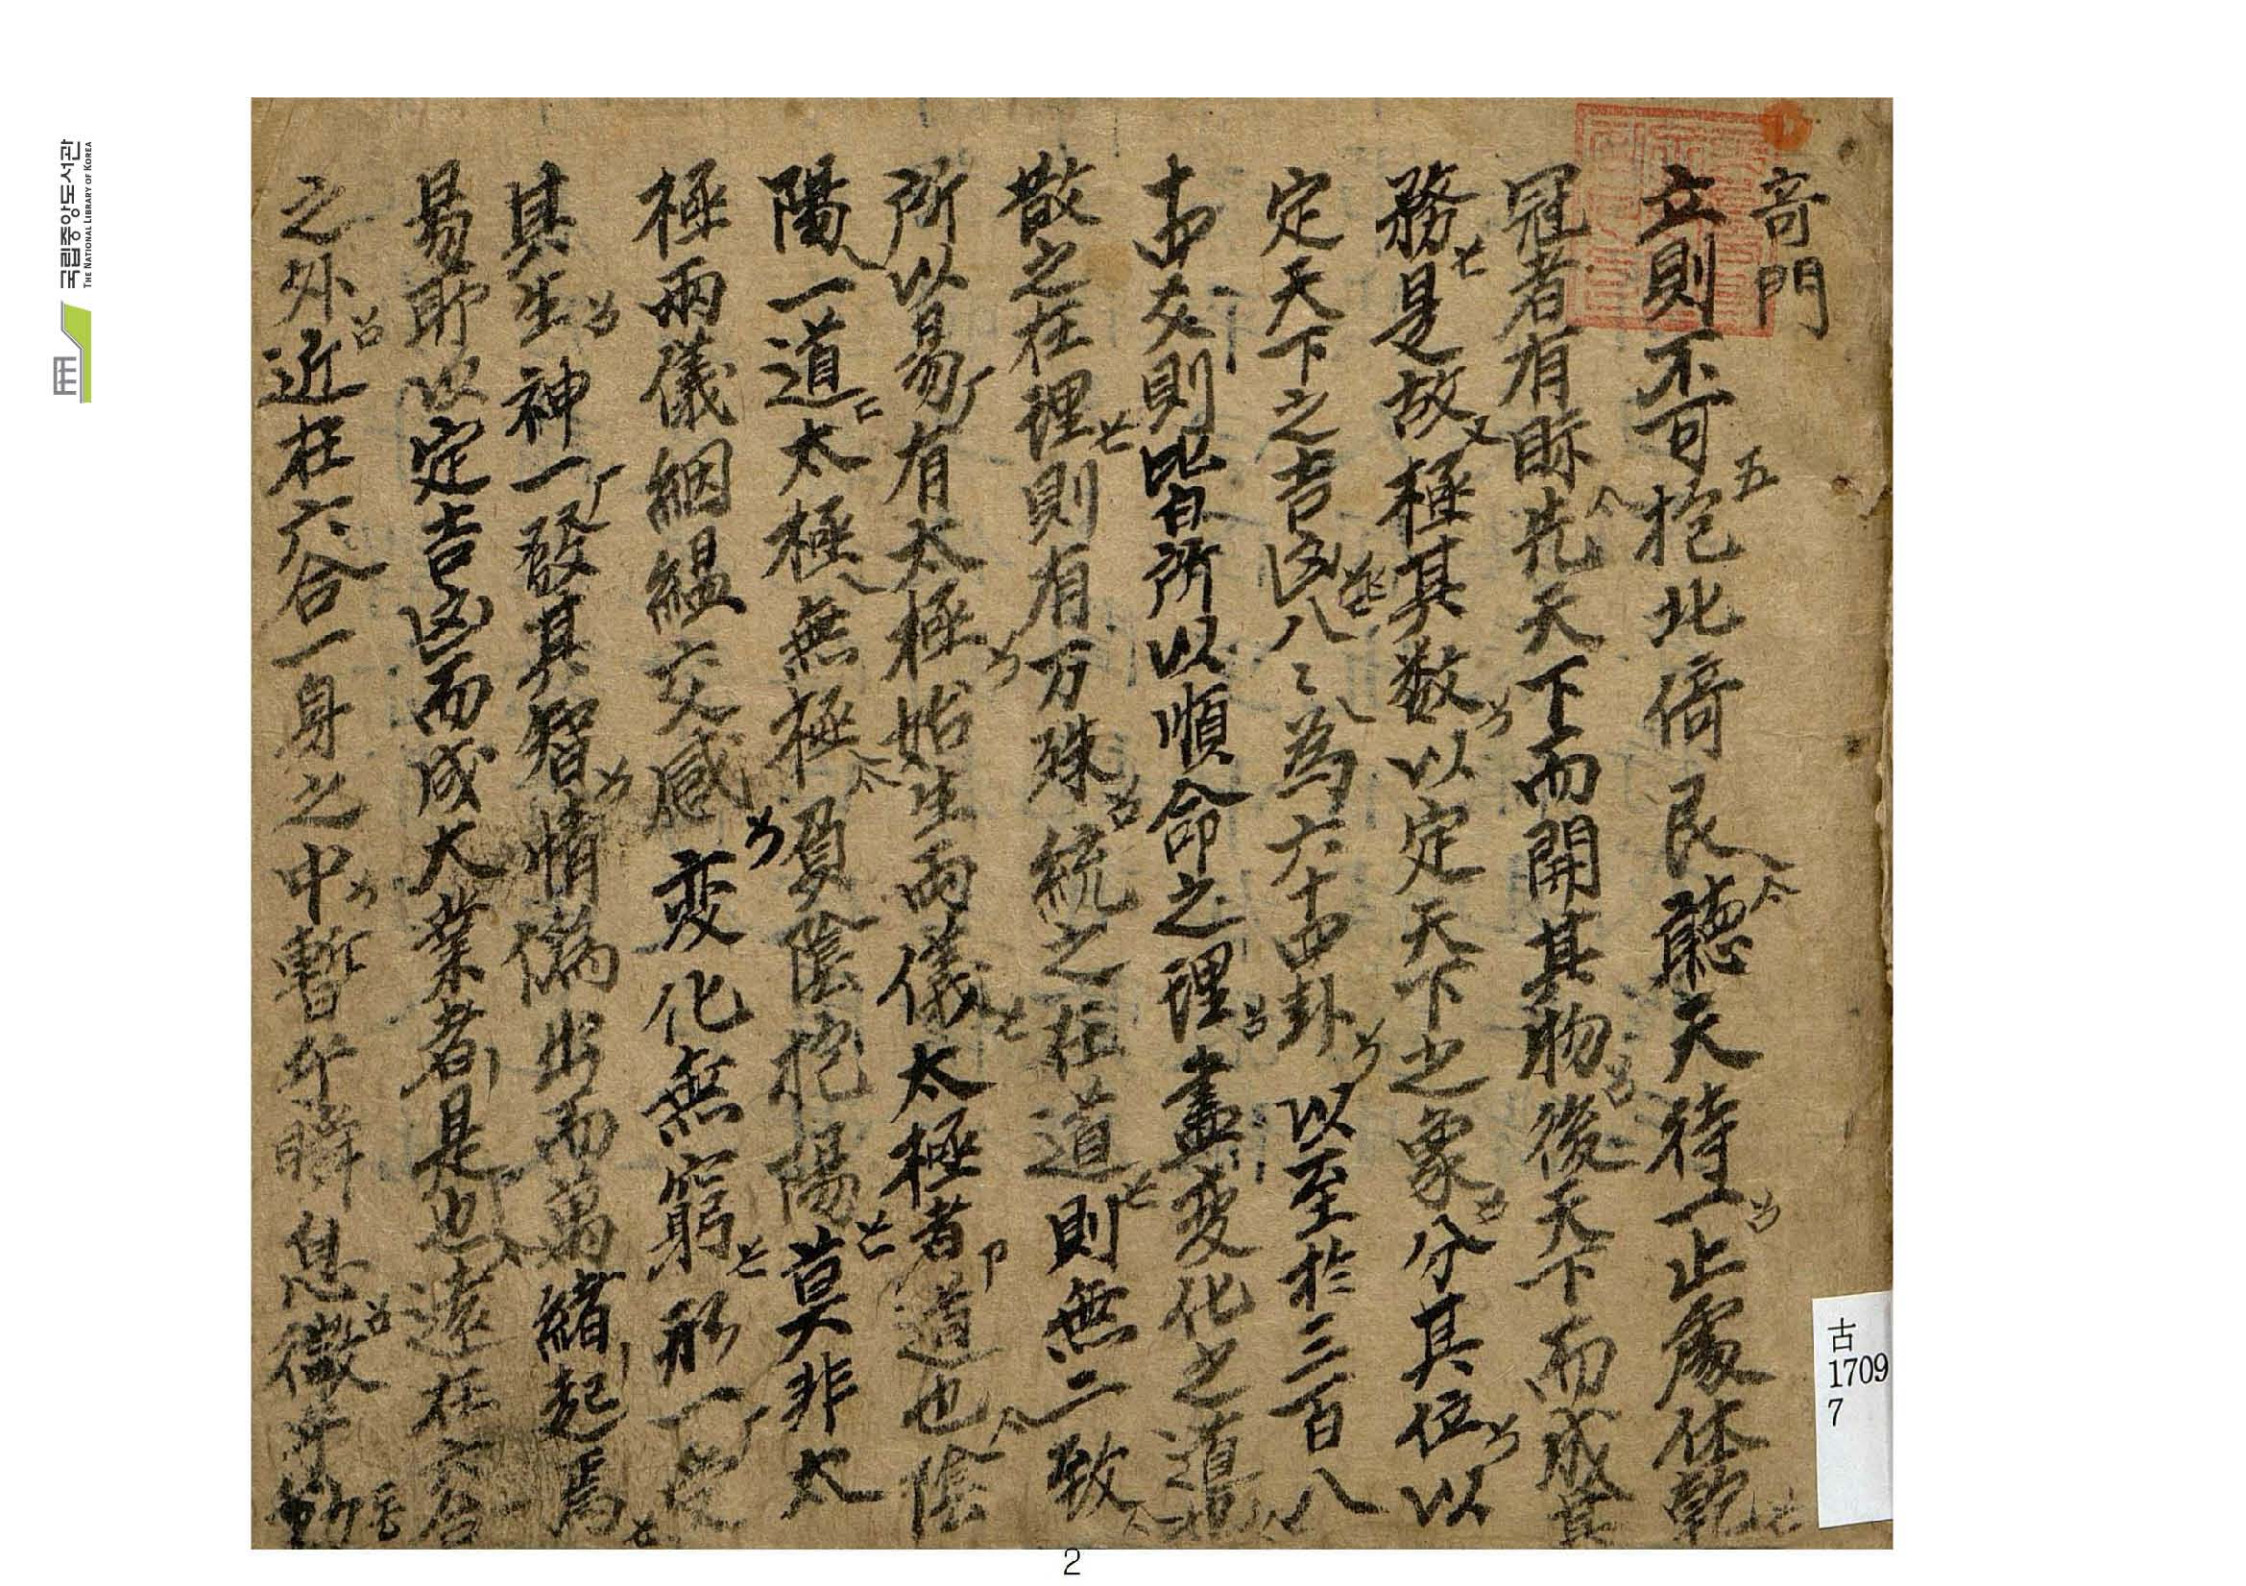 奇門
立則不可抱北倚艮聽天待一止處休乾
冠者有眎先天下而開其物後天下而成其
務是故極其数以定天下之象分其位以
定天下之吉凶八〻為六十四卦以至於三百八
十四爻則皆所以順命之理盡变化之道
散之在理則有万殊統之在道則無二致
所以易有太極始生兩儀太極者道也陰
陽一道太極無極負陰抱陽莫非太
極兩儀絪縕交感变化無窮形一受
其生神一發其智情偽出而萬緒起焉
易所以定吉凶而成大業者是也遠在六合
之外近在六合一身之中暫於瞬息微於動
五
국립중앙도서관
THE NATIONAL LIBRARY OF KOREA
古
1709
7
2